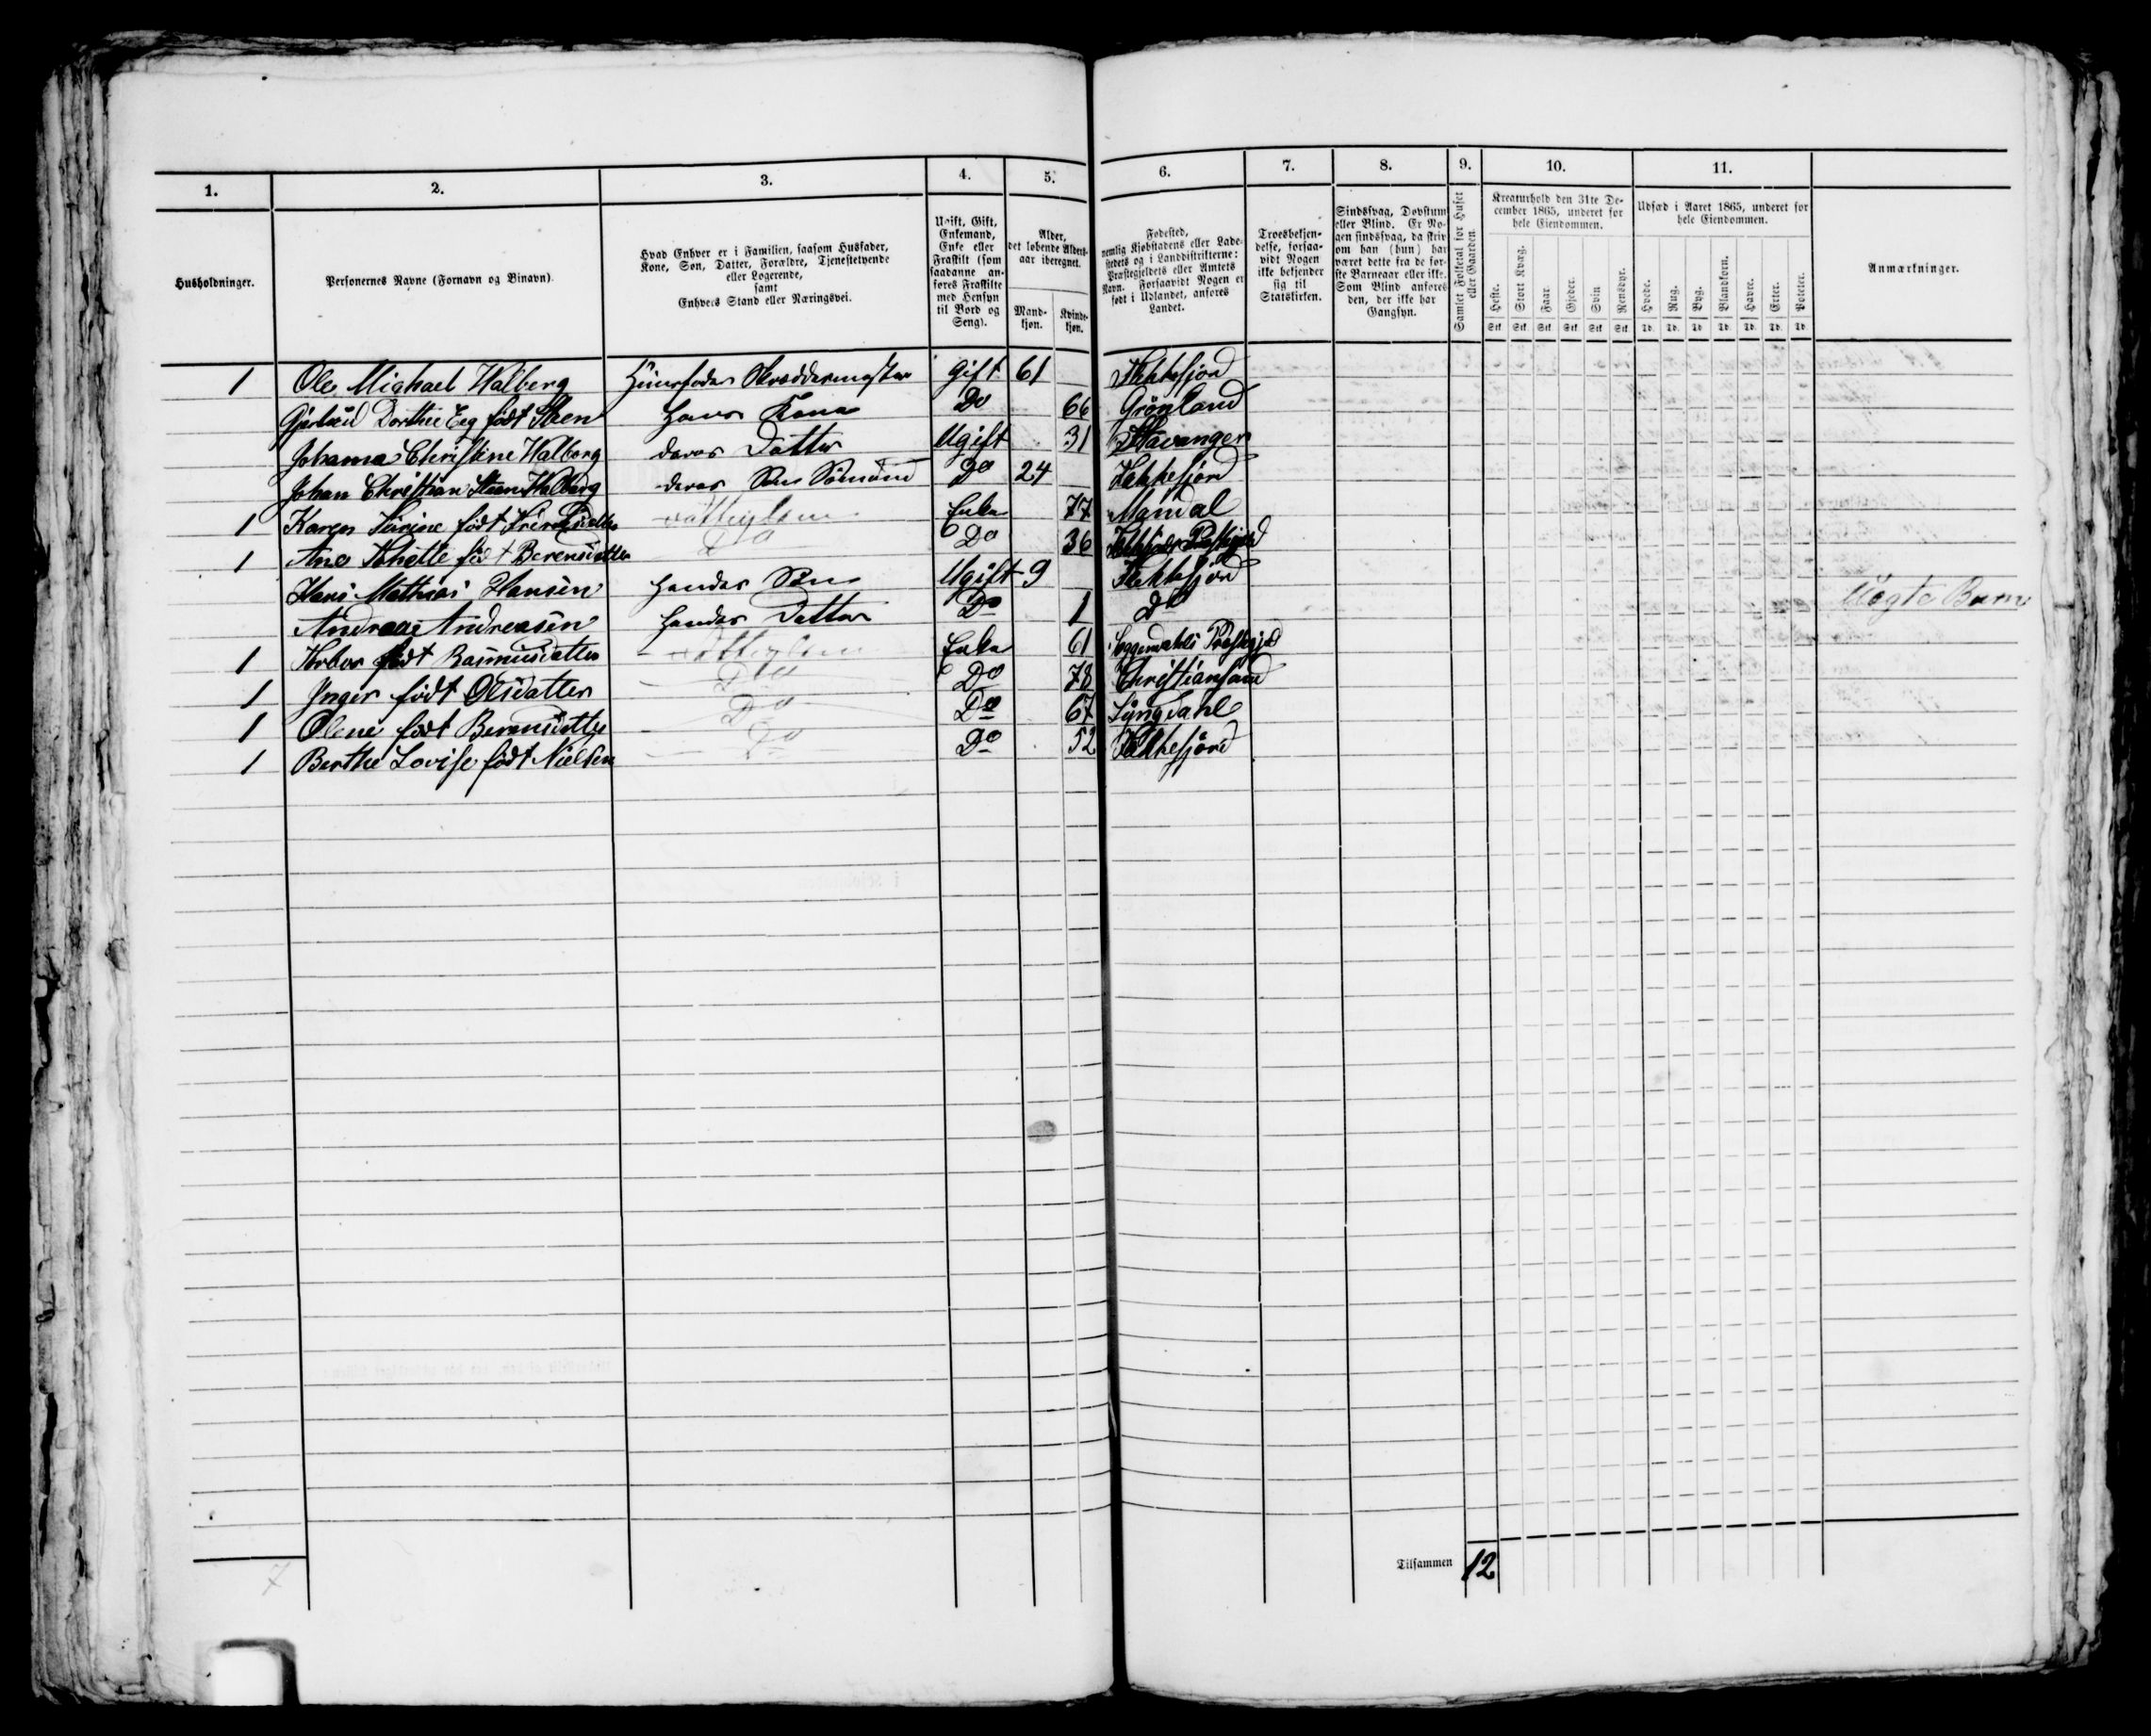 1. 2. 3. 4. 5. 6. 7. 8. 9. 10. 11.
Husholdninger.
Personernes Navne (Fornavn og Binavn).
Hvad Enhver er i Familien, saasom Husfader,
Kone, Søn, Datter, Forældre, Tjenestetyende
eller Logerende,
samt
Enhvers Stand eller Næringsvei.
Ugift, Gift,
Enkemand,
Enke eller
Fraskilt (som
saadanne an-
føres Fraskilte
med Hensyn
til Bord og
Seng).
Alder,
det løbende Alders-
aar iberegnet.
Mand-
kjøn.
Kvinde-
kjøn.
Fødested,
nemlig Kjøbstadens eller Lade-
stedets og i Landdistrikterne:
Præstegjeldets eller Amtets
Navn. Forsaavidt Nogen er
født i Udlandet, anføres
Landet.
Troesbekjen-
delse, forsaa-
vidt Nogen
ikke bekjender
sig til
Statskirken.
Sindssvag, Døvstum
eller Blind. Er No-
gen sindssvag, da skriv
om han (hun) har
været dette fra de før-
ste Barneaar eller ikke.
Som Blind anføres
den, der ikke har
Gangsyn.
Samlet Folketal for Huset
eller Gaarden.
Kreaturhold den 31te De-
cember 1865, underet for
hele Eiendommen.
Heste. Stort Kvæg. Faar. Gjeder. Svin Rensdyr.
Stk. Stk. Stk. Stk. Stk. Stk.
Udsæd i Aaret 1865, underet for
hele Eiendommen.
Hvede. Rug. Byg. Blandkorn. Havre. Erter. Poteter.
Td. Td. Td. Td. Td. Td. Td.
Anmærkninger.
1 Ole Michael Halberg Huusfader Skræddermester Gift 61 Flekkefjord
Dorthe Eeg født Steen hans Kone Do 66 Grönland
Johanna Christine Halberg deres Datter Ugift 31 Stavanger
Johan Christian Steen Halberg deres Søn Sømand Do 24 Flekkefjord
1 Karen født Enke 77 Mandal
1 Ane født Berentsdatter Do Do 36
Hans Mathias Hansen hendes Søn Ugift 9 Flekkefjord
Andrea Andreasen hendes Datter Do 1 Do Uægte Barn
1 født Rasmusdatter Enke 61 Soggendahls Præstegjld
1 Inger født Olsdatter Do Do 78 Christiansand
1 Olene født Berentsdatter Do Do 67 Lyngdahl
1 Berthe Lovise født Nielsen Do Do 52 Flekkefjord
Tilsammen 12
7